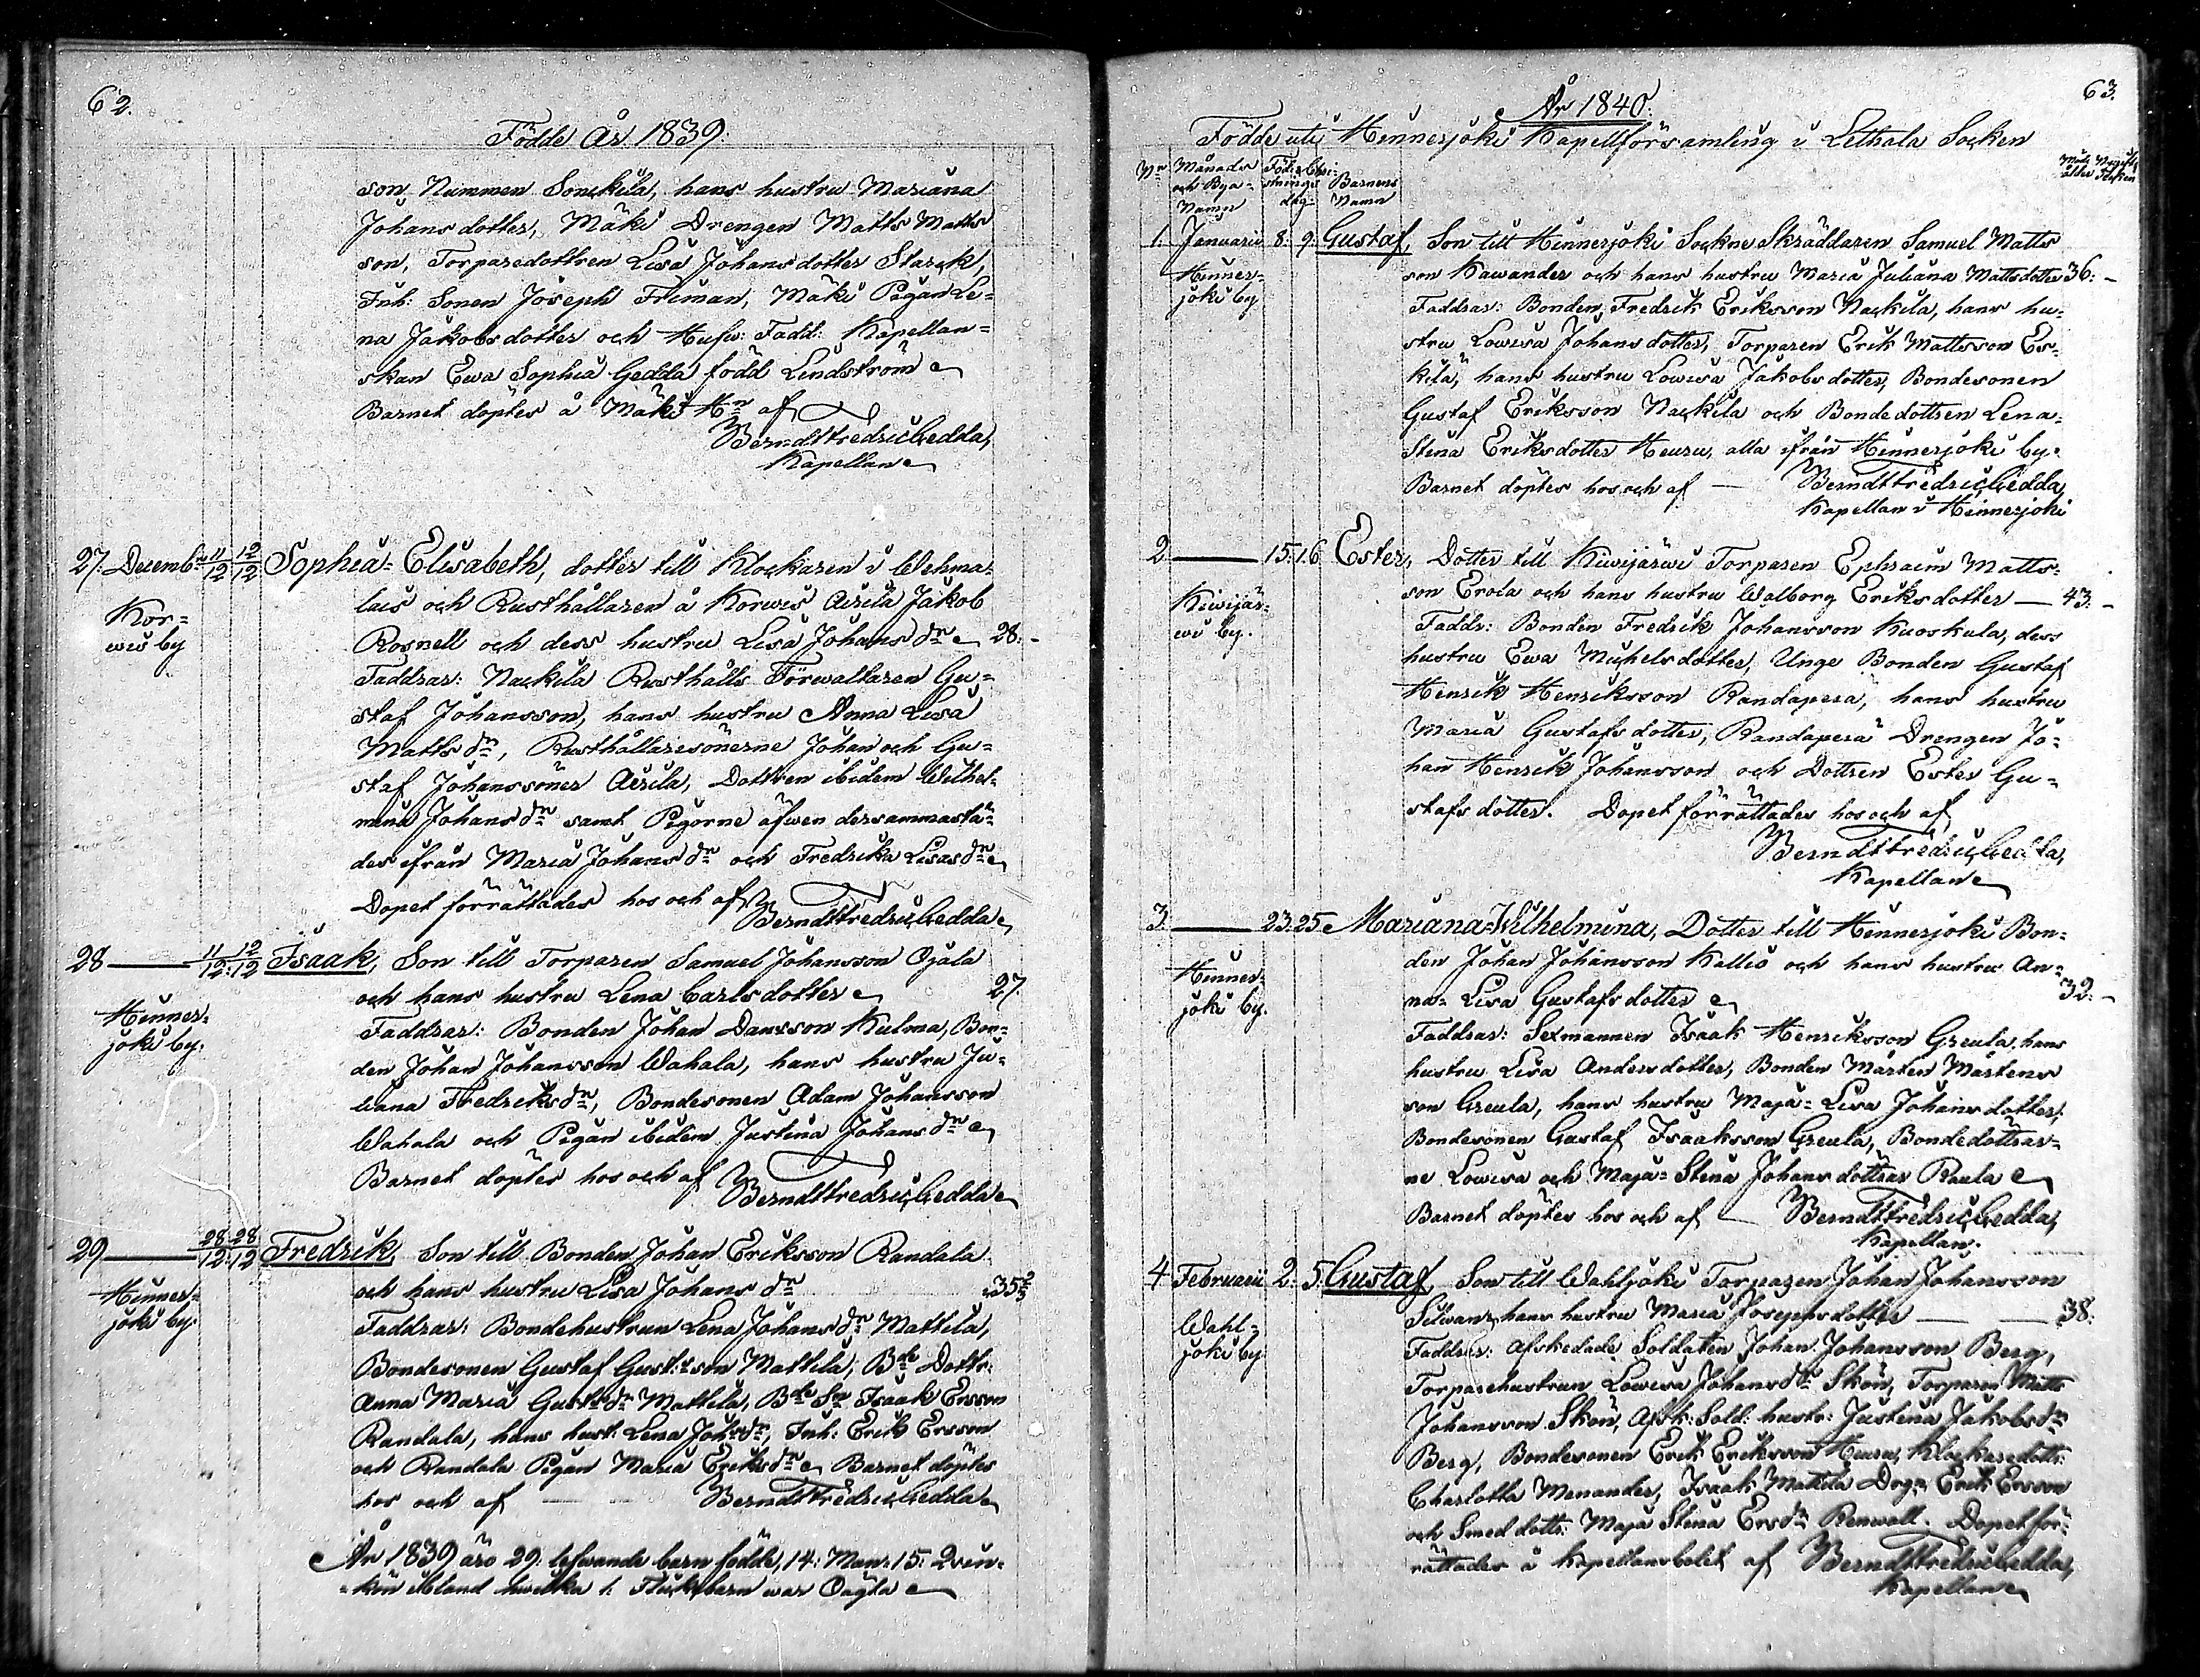 62.
Födde År 1839.
son Nummen Sonckila, hans hustru Mariana
Johansdotter, Mäki Drengen Matts Matts
son, Torparedottren Lisa Johansdotter Starck,
Inh: Sonen Joseph Friman, Mäki Pigan Le=
na Jakobsdotter och Hufw: Fadd: Kapellan=
skan Ewa Sophia Gedda född Lindström
Barnet döptes å Mäki Hn af
Berndt Fredric Gedda,
Kapellan
27. Decembr 11/12 12/12 Sophia=Elisabeth, dotter till Klockaren i Wehma=
Kor=
wis by
lais och Rusthållaren å Korwis Aerilä Jakob
Rosnell och dess hustru Lisa Johans dr 28.
Faddrar: Nackila Rusthålls Förwaltaren Gu=
staf Johansson, hans hustru Anna Lisa
Matts dr, Rusthållaresönerne Johan och Gu=
staf Johanssöner Aerila, Dottren ibidem Wilhel=
mina Johans dr samt Pigorne äfwen dersammastä=
des ifrån Maria Johans dr och Fredrika Lisas dr
Dopet förrättades hos och af Berndt Fredric Gedda
28 11/12 12/12 Isaak, Son till Torparen Samuel Johansson Ojala
Hinner=
joki by.
och hans hustru Lena Carlsdotter 27.
Faddrar: Bonden Johan Dansson Kulma, Bon=
den Johan Johansson Wahala, hans hustru Ju=
liana Fredriks dr, Bondesonen Adam Johansson
Wahala och Pigan ibidem Justina Johans dr
Barnet döptes hos och af Berndt Fredric Gedda
29 28/12 28/12 Fredrik, Son till Bonden Johan Eriksson Randala
Hinner=
joki by
och hans hustru Lisa Johans dr 35
Faddrar: Bondehustrun Lena Johans dr Mattila,
Bondesonen Gustaf Gust:sson Mattila, Bde Dottr:
Anna Maria Gust: dr Mattila, Bde Sn Isaak Ersson
Randala, hans hust: Lena Joh: dr, Inh: Erik Ersson
och Randala Pigan Maria Eriks dr Barnet döptes
hos och af Berndt Fredric Gedda
År 1839 äro 29. lefwande barn födde, 14: Man: 15: Qwin=
=kön ibland hwilka 1. Flickebarn war Oägta
63.
År 1840.
Födde uti Hinnerjoki Kapellförsamling i Lethala Socken
Nr Månads
och Bya=
Namn
Föd: & Chri=
stnings
dag.
Barnens
Namn
1. Januarii 8. 9. Gustaf, Son till Hinnerjoki Sockne Skräddaren Samuel Matts
Hinner=
joki by
son Kawander och hans hustru Maria Juliana Mattsdotter 36.
Faddrar: Bonden Fredrik Eriksson Nackila, hans hu=
stru Lowisa Johansdotter, Torparen Erik Mattsson Es=
kila, hans hustru Lowisa Jakobsdotter, Bondesonen
Gustaf Eriksson Nackila och Bondedottren Lena=
Stina Eriksdotter Heuru, alla ifrån Hinnerjoki by.
Barnet döptes hos och af Berndt Fredric Gedda
Kapellan i Hinnerjoki
2. 15. 16. Ester, Dotter till Kiwijärwi Torparen Ephraim Matts=
Kiwijär=
wi by.
son Erola och hans hustru Walborg Eriksdotter 43.
Faddr: Bonden Fredrik Johansson Kuoskula, dess
hustru Ewa Michelsdotter, Unge Bonden Gustaf
Henrik Henriksson Randapera, hans hustru
Maria Gustafsdotter, Randapera Drengen Jo=
han Henrik Johansson och Dottren Ester Gu=
stafsdotter. Dopet förrättades hos och af
Berndt Fredric Gedda,
Kapellan
3. 23. 25. Mariana=Wilhelmina, Dotter till Hinnerjoki Bon=
Hinner=
joki by.
den Johan Johansson Kallio och hans hustru An=
na=Lisa Gustafsdotter 32.
Faddrar: Sexmannen Isaak Henriksson Greula, hans
hustru Lisa Andersdotter, Bonden Mårten Mårtens
son Greula, hans hustru Maja=Lisa Johansdotter,
Bondesonen Gustaf Isaaksson Greula, Bondedöttrar=
ne Lowisa och Maja=Stina Johansdöttrar Raula
Barnet döptes hos och af Berndt Fredric Gedda,
Kapellan.
4 Februarii 2. 5. Gustaf Son till Wahljoki Torparen Johan Johansson
Wahl=
joki by
Silwan, hans hustru Maria Josephsdotter 38.
Faddrar: Afskedade Soldaten Johan Johansson Berg,
Torparehustrun Lowisa Johans dr Skön, Torparen Matts
Johansson Skön, Afsk: Sold: hustr: Justina Jakobs dr
Berg, Bondesonen Erik Eriksson Heuru, Klockaredottr:
Charlotta Menander, Isaak Mattila Drg: Erik Ersson
och Smed dottr: Maja Stina Ers dr Renwall. Dopet för=
rättades å Kapellansbolet af Berndt Fredric Gedda,
Kapellan